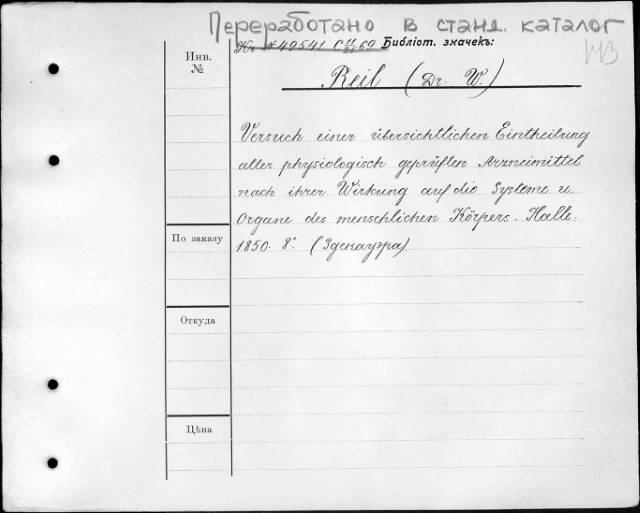 Переработано в станд. каталог
К № 49541 C 11/26 69 Библіот. значекъ:
Инв. №
Reil (Dr. W.)
Versuch einer übersichtlichen Eintheilung
aller physiologisch geprüften Arzneimittel
nach ihrer Wirkung auf die Systeme u.
Organe des menschlichen Körpers. Halle.
1850. 8°. (Здекауэра)
По заказу
Откуда
Цѣна